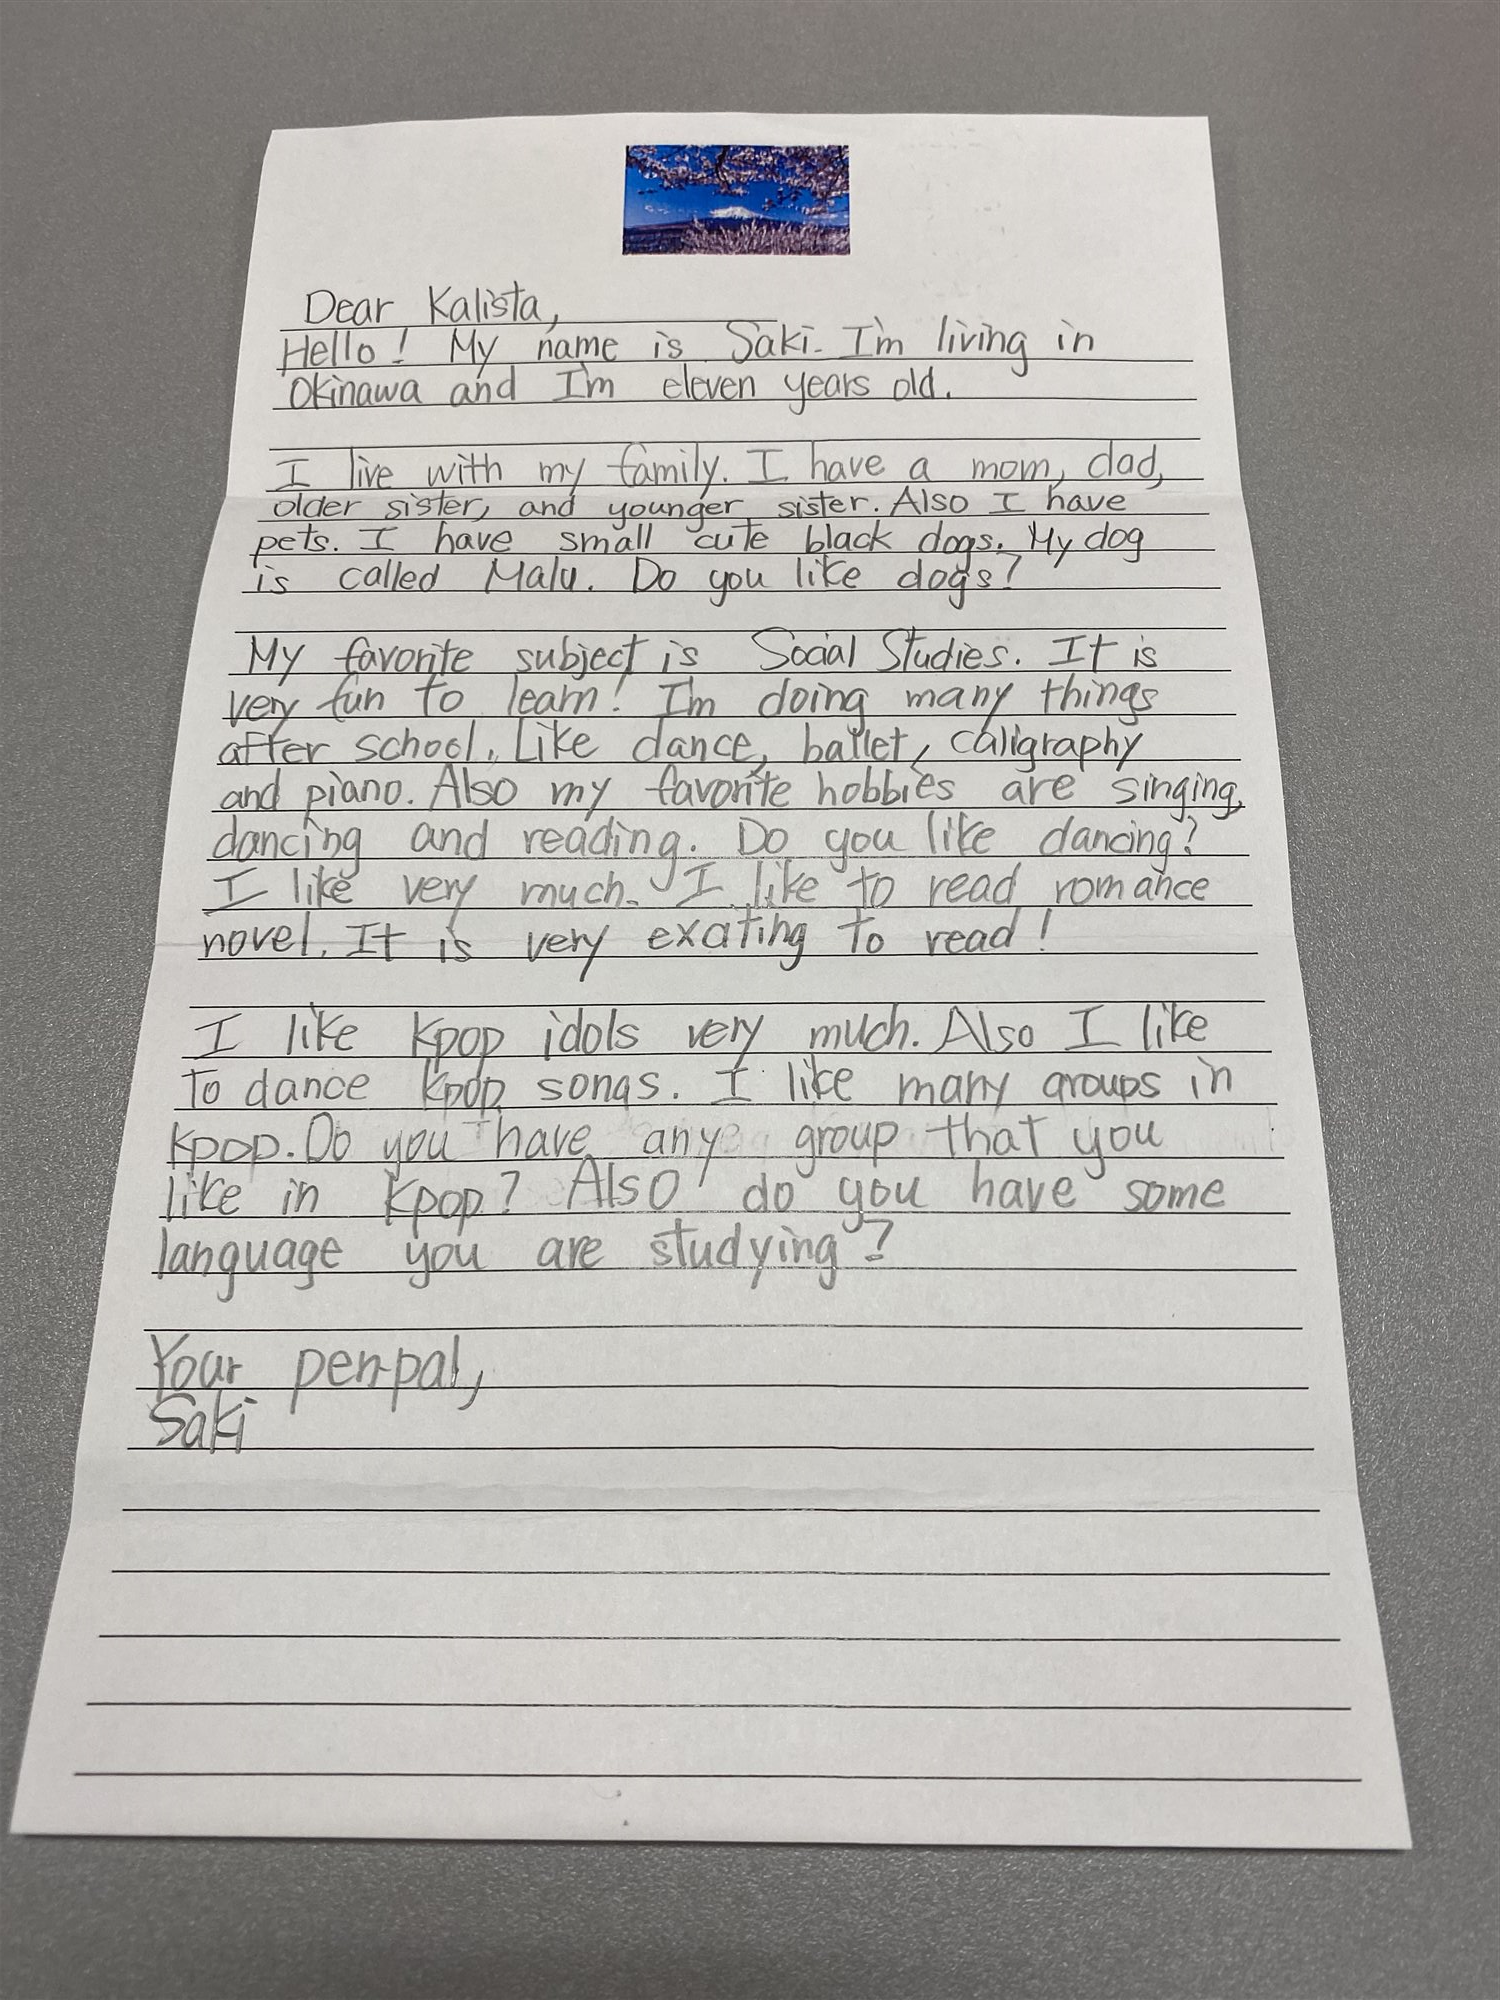 Dear Kalista,
Hello! My name is Saki. I'm living in
Okinawa and I'm eleven years old.
I live with my family. I have a mom, dad,
older sister, and younger sister. Also I have
pets. I have small cute black dogs. My dog
is called Malu. Do you like dogs?
My favorite subject is Social Studies. It is
very fun to learn! I'm doing many things
after school. Like dance, ballet, caligraphy
and piano. Also my favorite hobbies are singing,
dancing and reading. Do you like dancing?
I like very much. I like to read romance
novel. It is very exating to read!
I like kpop idols very much. Also I like
to dance kpop songs. I like many groups in
kpop. Do you have any group that you
like in kpop? Also do you have some
language you are studying?
Your pen-pal,
Saki